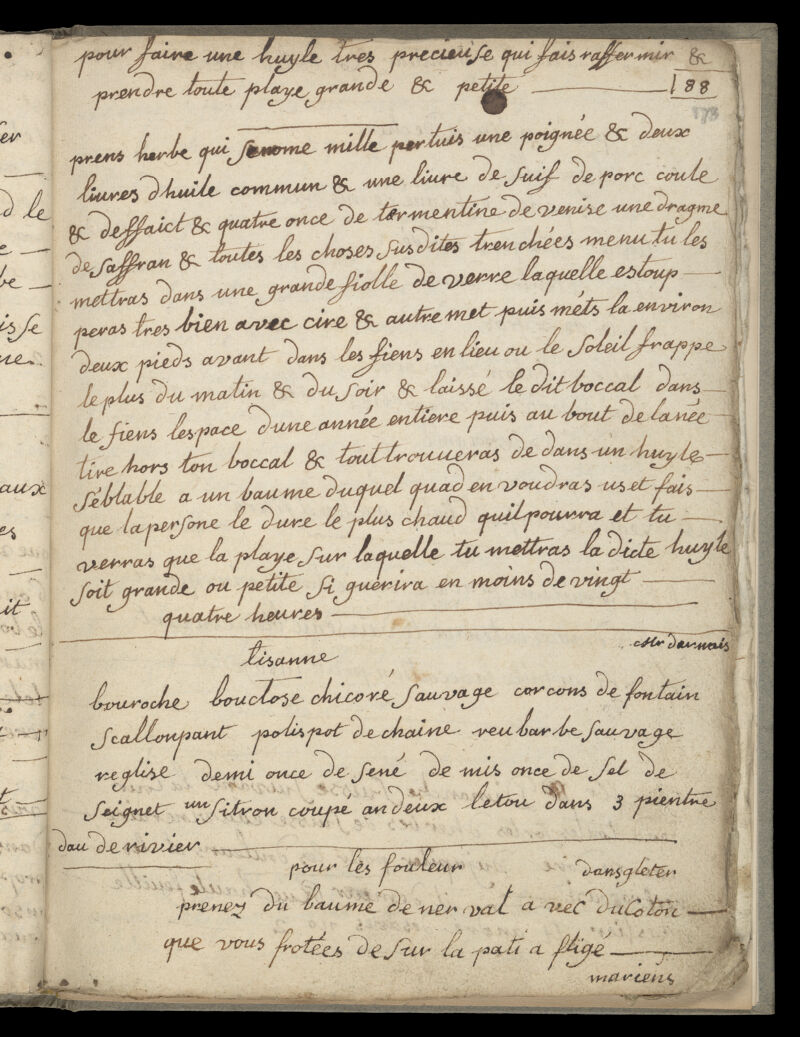 pour faire une huyle tres precieuse qui fais raffermir &
prendre toute playe grande & petite 188
173
prens herbe qui se nome mille pertuis une poignée & deux
livres dhuile commun & une livre de suif de porc coulé
& deffaict & quatre once de termentine de venise une dragme
de saffran & toutes les choses susdites trenchées menu tu les
mettras dans une grande fiolle de verre laquelle estoup
peras tres bien avec cire & autre met puis méts la environ
deux pieds avant dans les fiens en lieu ou le soleil frappe
le plus du matin & du soir & laissé le dit boccal dans
le fiens lespace dune année entiere puis au bout de lanée
tire hors ton boccal & tout trouueras de dans un huyle
séblable a un baume duquel quad en voudras uset fais
que la persone le dure le plus chaud quil pourra et tu
verras que la playe sur laquelle tu mettras la dicte huyle
soit grande ou petite si guerira en moins de vingt
quatre heures
tisanne
bouroche bouctose chicoré sauvage corcons de fontain
scallonpant polispot de chaine reubarbe sauvage
reglise demi once de sené de mis once de sel de
seignet un sitron coupe an deux letou dans 3 pientre
dau de rivier
pour les fouleur dansgleter
prenez du baume de nerval a vec du coton
que vous frotées de sur la pati a fligé
mariens